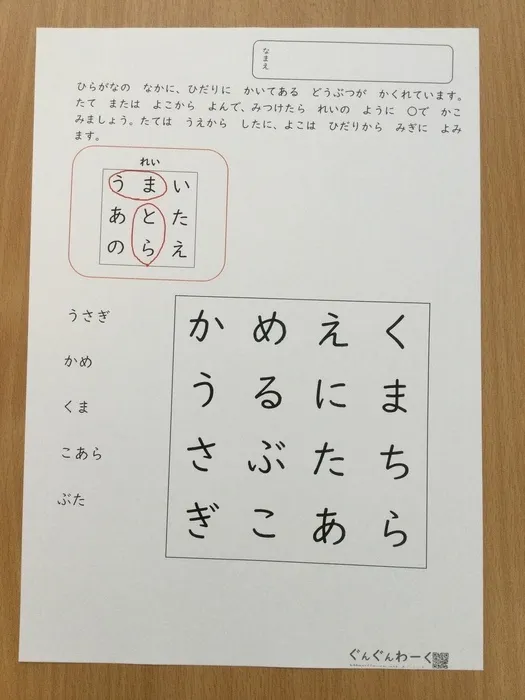 なまえ
ひらがなの なかに、ひだりに かいてある どうぶつが かくれています。
たて または よこから よんで、みつけたら れいの ように 〇で かこ
みましょう。たては うえから したに、よこは ひだりから みぎに よみ
ます。
れい
う ま い
あ と た
の ら え
うさぎ
かめ
くま
こあら
ぶた
か め え く
う る に ま
さ ぶ た ち
ぎ こ あ ら
ぐんぐんわーく